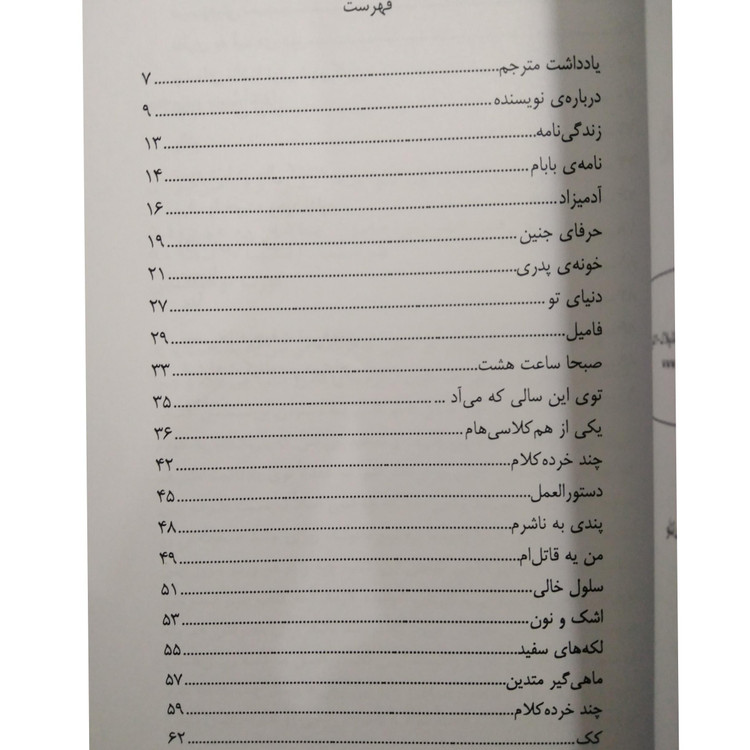 فهرست
یادداشت مترجم..........۷
درباره‌ی نویسنده..........۹
زندگی‌نامه..........۱۳
نامه‌ی بابام..........۱۴
آدمیزاد..........۱۶
حرفای جنین..........۱۹
خونه‌ی پدری..........۲۱
دنیای تو..........۲۷
فامیل..........۲۹
صبحا ساعت هشت..........۳۳
توی این سالی که می‌آد ... ..........۳۵
یکی از هم‌کلاسی‌هام..........۳۶
چند خرده‌کلام..........۴۲
دستورالعمل..........۴۵
پندی به ناشرم..........۴۸
من یه قاتل‌ام..........۴۹
سلول خالی..........۵۱
اشک و نون..........۵۳
لکه‌های سفید..........۵۵
ماهی‌گیر متدین..........۵۷
چند خرده‌کلام..........۵۹
کک..........۶۲